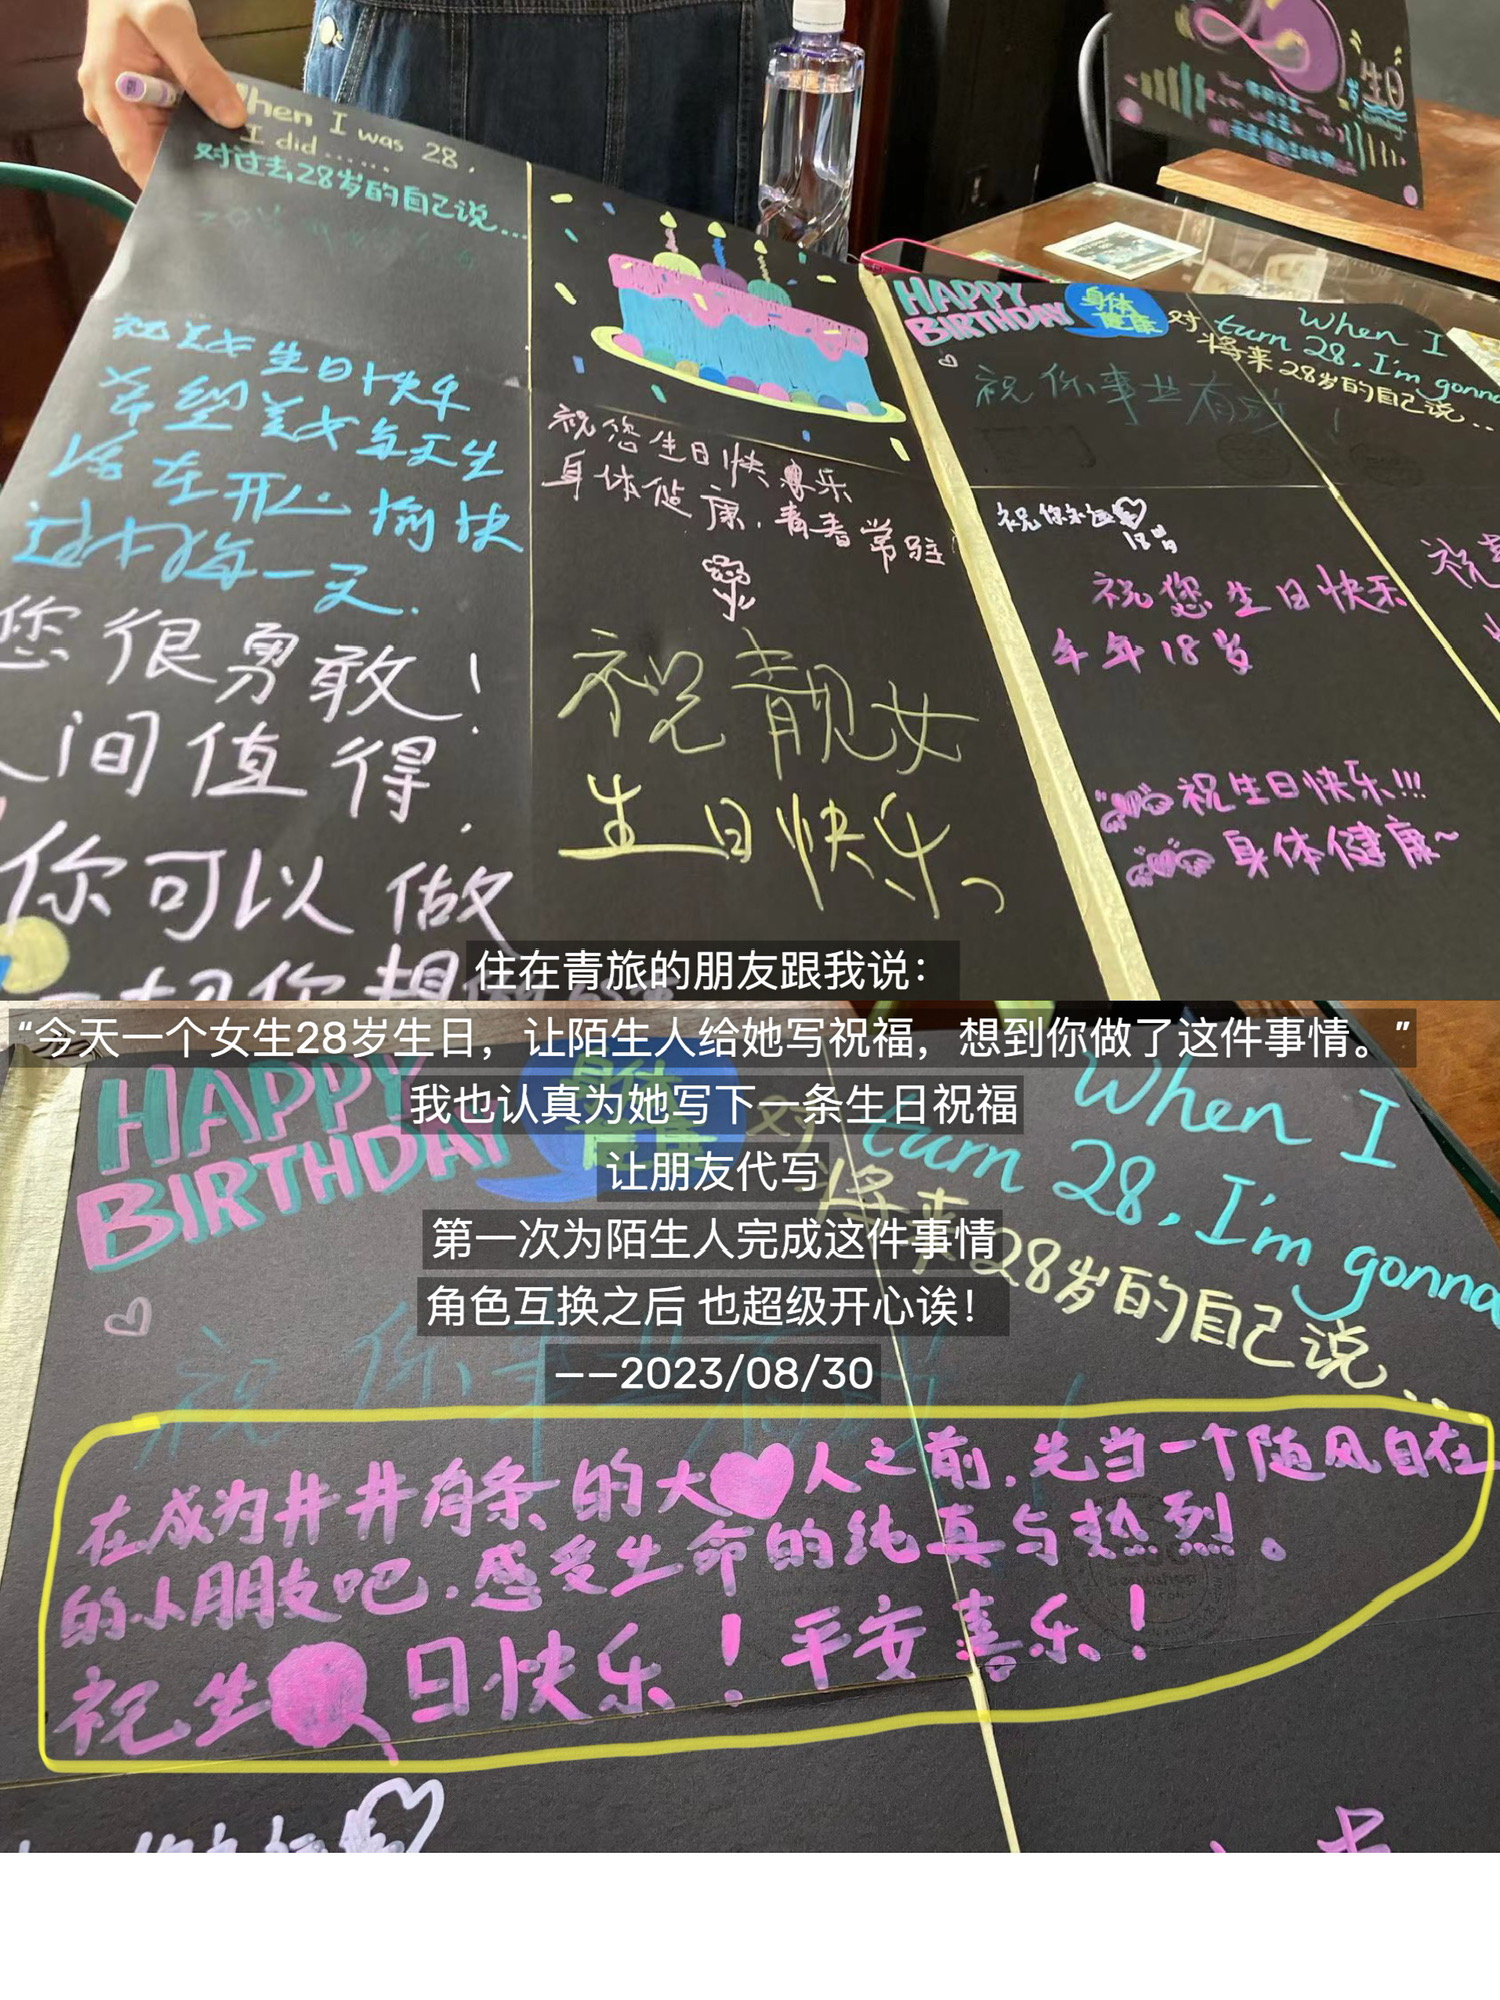 When I was 28,
I did......
对过去28岁的自己说...
祝美女生日快乐
希望美女每天生
活在开心愉快
过好每一天.
您很勇敢!
人间值得.
你可以做
一切你想
祝您生日快乐
身体健康.青春常驻
祝靓女
生日快乐
HAPPY
BIRTHDAY
身体
健康
对
When I
turn 28, I'm gonna
将来28岁的自己说...
祝你事业有成!
祝你永远
18岁
祝您生日快乐
年年18岁
祝生日快乐!!!
身体健康~
生日
住在青旅的朋友跟我说：
“今天一个女生28岁生日，让陌生人给她写祝福，想到你做了这件事情。”
我也认真为她写下一条生日祝福
让朋友代写
第一次为陌生人完成这件事情
角色互换之后 也超级开心诶！
——2023/08/30
HAPPY
BIRTHDAY
身体
健康
对
When I
turn 28, I'm gonna
将来28岁的自己说...
在成为井井有条的大人之前,先当一个随风自在
的小朋友吧.感受生命的纯真与热烈。
祝生日快乐!平安喜乐!